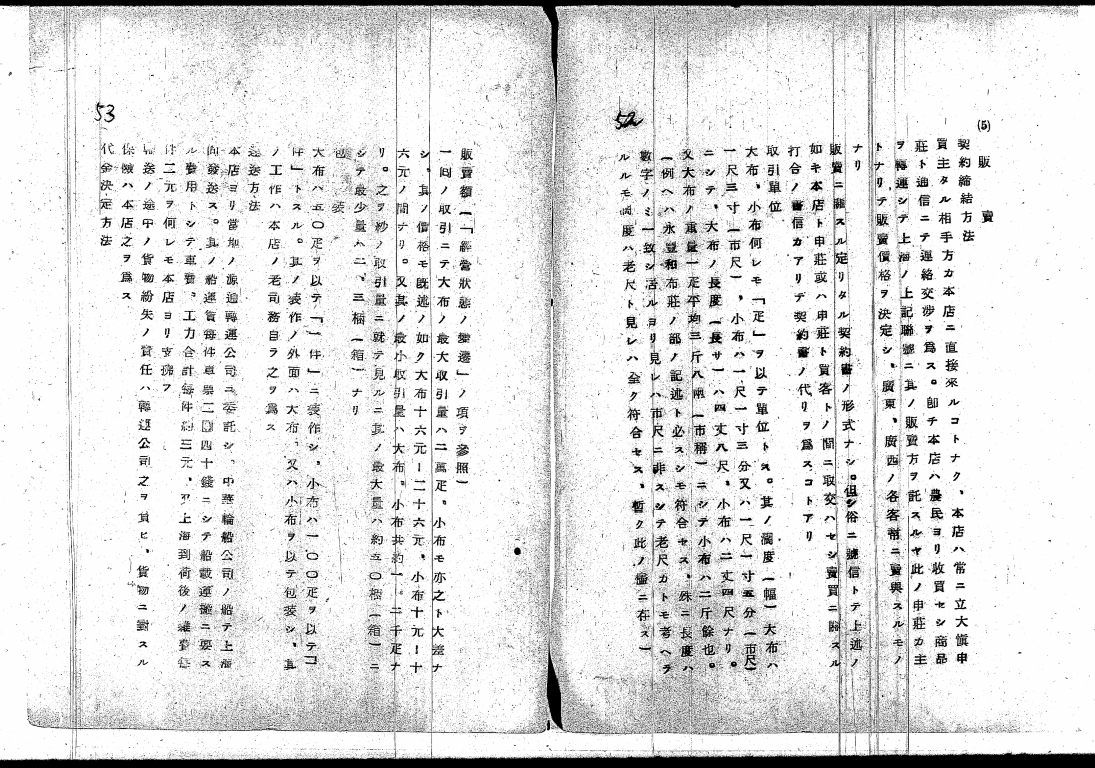 52
(5)
販賣
契約締結方法
買主タル相手方カ本店ニ直接來ルコトナク、本店ハ常ニ立大愼申
莊ト通信ニテ連絡交渉ヲ爲ス。卽チ本店ハ農民ヨリ收買セシ商品
ヲ轉運シテ上海ノ上記聯號ニ其ノ販賣方ヲ託スルヤ此ノ申莊カ主
トナリテ販賣價格ヲ決定シ、廣東、廣西ノ各客幇ニ賣與スルモノ
ナリ
販賣ニ關スル定リタル契約書ノ形式ナシ。但シ俗ニ號信トテ上述ノ
如キ本店ト申莊或ハ申莊ト買客トノ間ニ取交ハセシ賣買ニ關スル
打合ノ書信カアリテ契約書ノ代リヲ爲スコトアリ
取引單位
大布、小布何レモ「疋」ヲ以テ單位トス。其ノ濶度(幅)大布ハ
一尺三寸(市尺)、小布ハ一尺一寸三分又ハ一尺一寸五分(市尺)
ニシテ、大布ノ長度(長サ)ハ四丈八尺、小布ハ二丈四尺ナリ。
又大布ノ重量一疋平均三斤八兩(市稱)ニシテ小布ハ二斤餘也。
(例ヘハ永豐和布莊ノ部ノ記述ト必スシモ符合セス、殊ニ長度ハ
數字ノミ一致シ居ルヨリ見レハ市尺ニ非スシテ老尺カトモ考ヘラ
ルルモ濶度ハ老尺ト見レハ全ク符合セス、暫ク此ノ儘ニ存ス)
53
販賣額(「經營狀態ノ變遷」ノ項ヲ參照)
一回ノ取引ニテ大布ノ最大取引量ハ二萬疋、小布モ亦之ト大差ナ
シ、其ノ價格モ旣述ノ如ク大布十六元—二十六元、小布十元—十
六元ノ間ナリ。又其ノ最小取引量ハ大布、小布共約一、二千疋ナ
リ。之ヲ紗ノ取引量ニ就テ見ルニ其ノ最大量ハ約五〇梱(箱)ニ
シテ最少量ハ二、三梱(箱)ナリ
包裝
大布ハ五〇疋ヲ以テ「一件」ニ裝作シ、小布ハ一〇〇疋ヲ以テ「一
件」トスル。其ノ裝作ノ外面ハ大布、又ハ小布ヲ以テ包裝シ、其
ノ工作ハ本店ノ老司務自ラ之ヲ爲ス
運送方法
本店ヨリ當地ノ源通轉運公司ニ委託シ、中華輪船公司ノ船テ上海
向發送ス。其ノ船運賃每件車票二圓四十錢ニシテ船載運搬ニ要ス
ル費用トシテ車費、工力合計每件約三元、又上海到荷後ノ雜費每
件二元ヲ何レモ本店ヨリ支拂フ
運送ノ途中ノ貨物紛失ノ責任ハ轉運公司之ヲ負ヒ、貨物ニ對スル
保險ハ本店之ヲ爲ス
代金決定方法